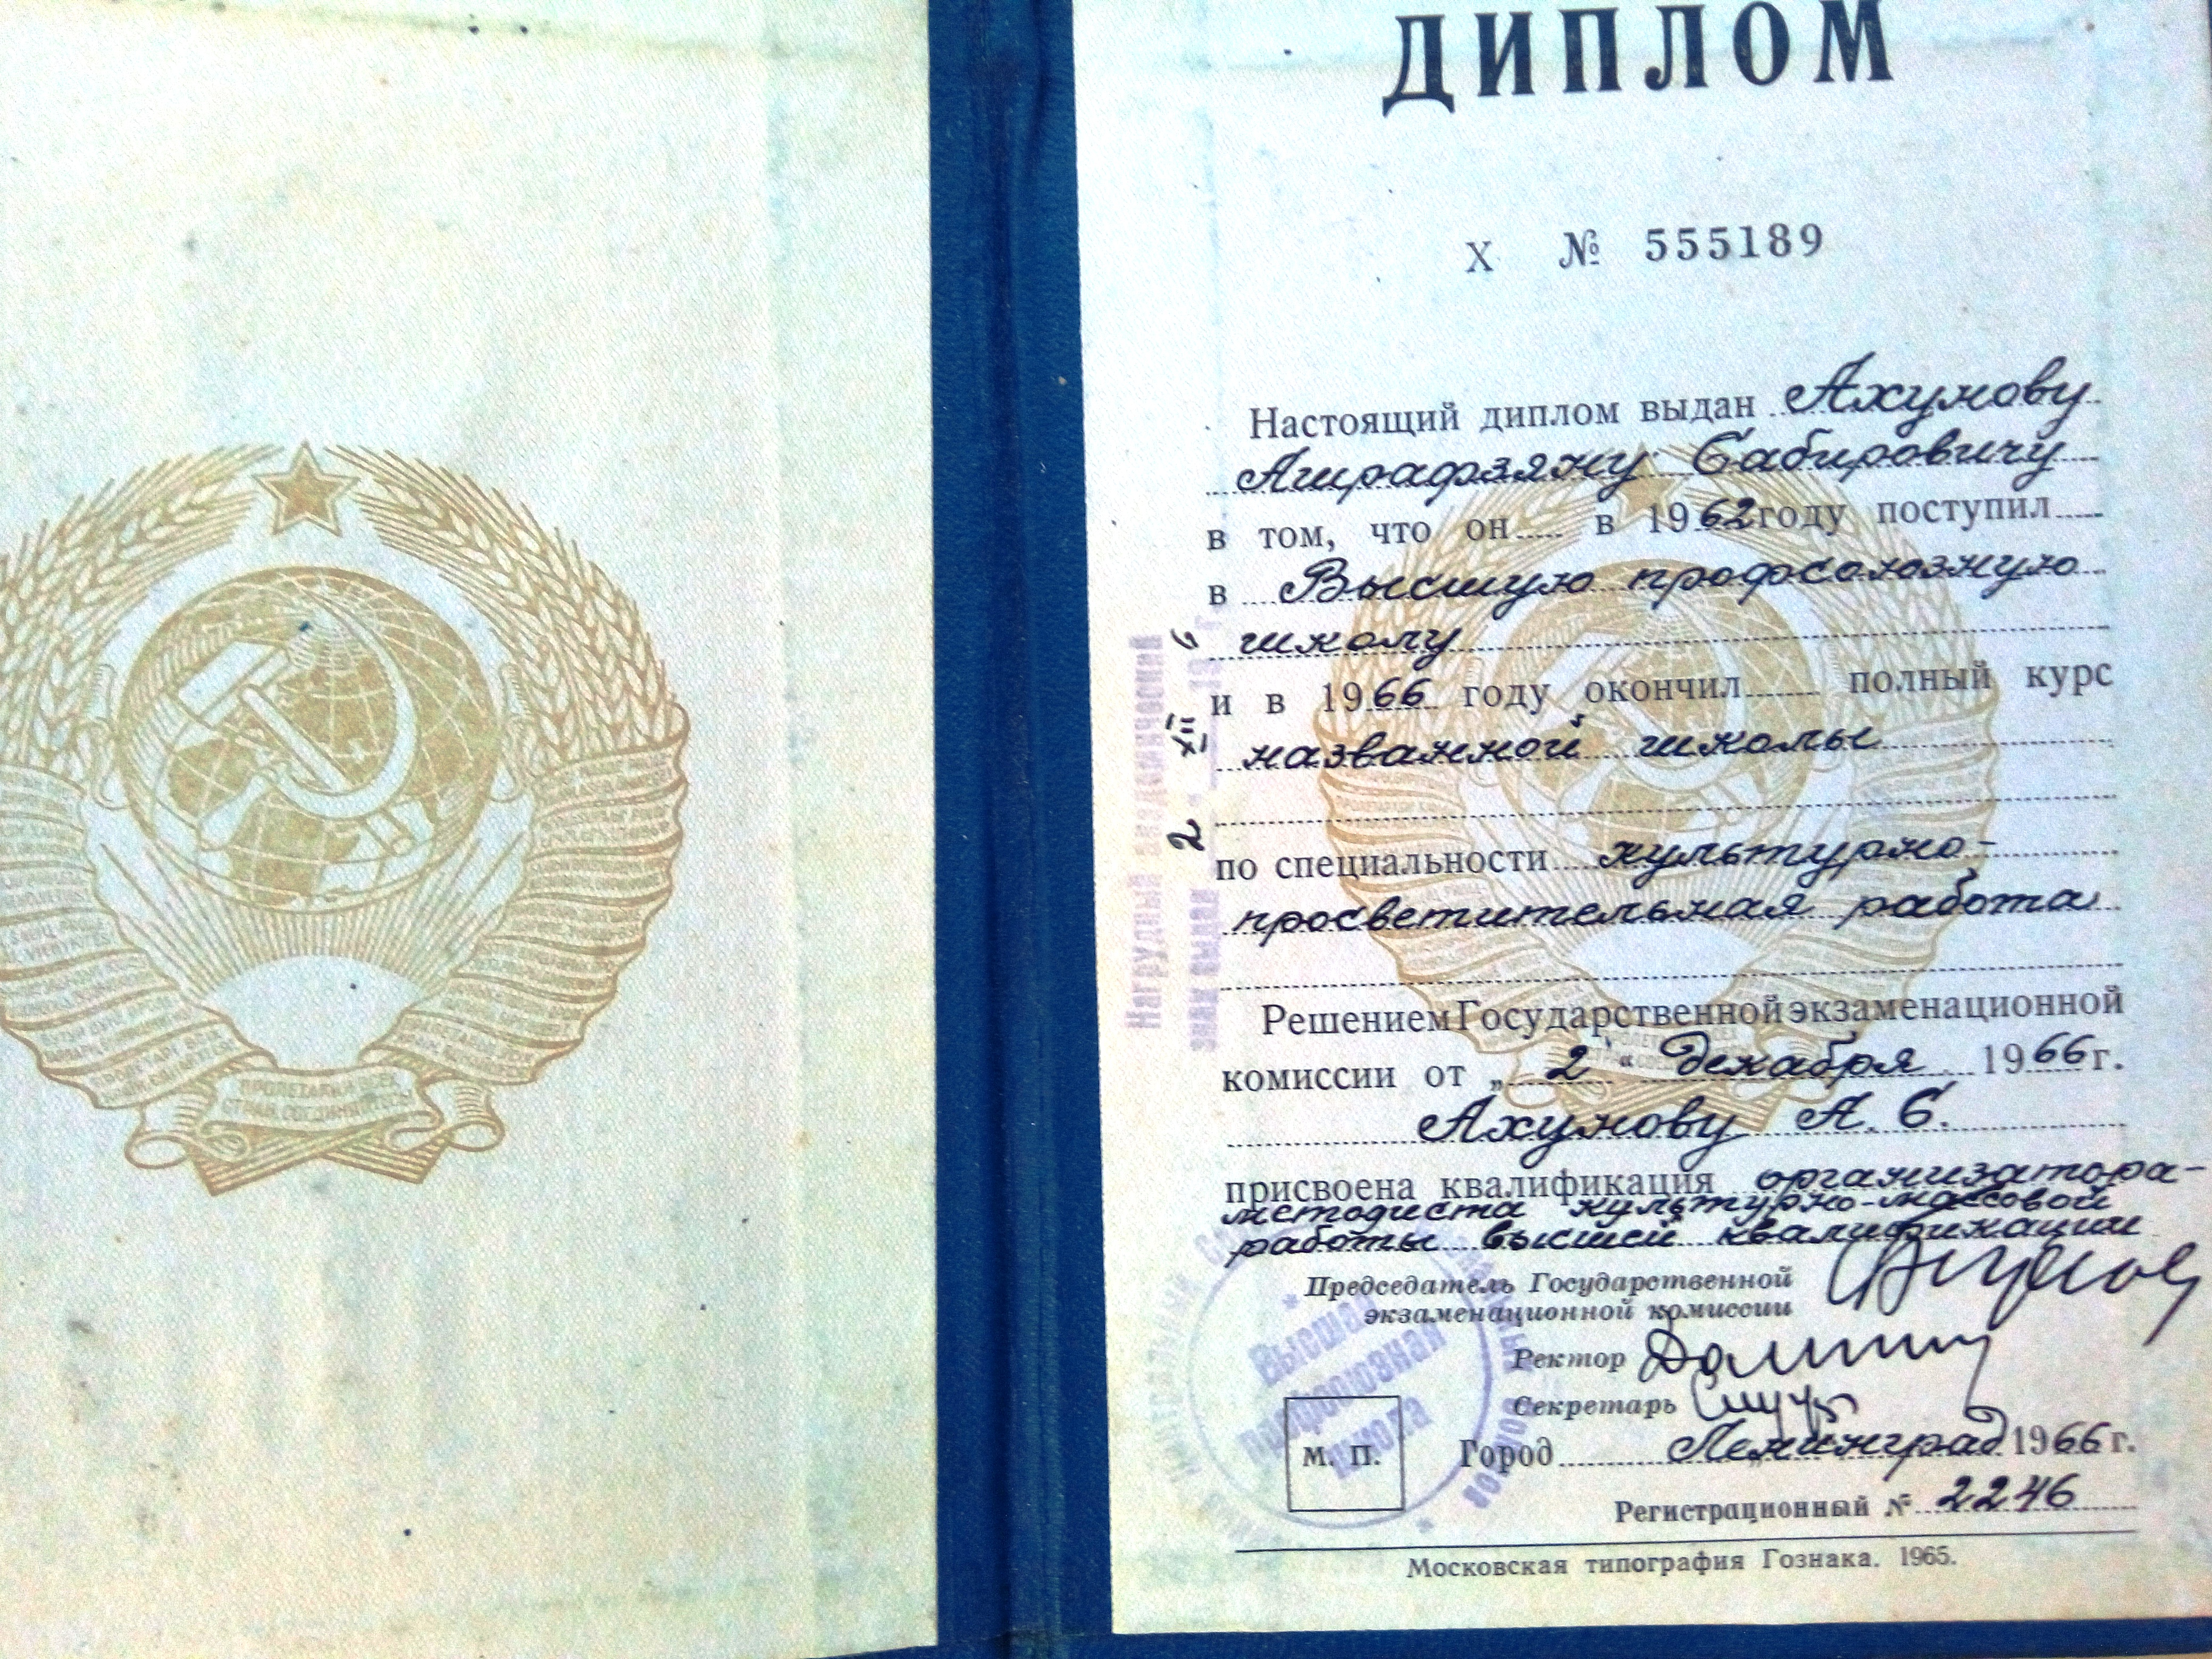 ДИПЛОМ
X № 555189
Настоящий диплом выдан Ахунову
Ашрафзяну Сабировичу
в том, что он в 1962 году поступил
в Высшую профсоюзную
школу
и в 1966 году окончил полный курс
названной школы
по специальности культурно-
просветительная работа
Решением Государственной экзаменационной
комиссии от „ 2 “ декабря 1966 г.
Ахунову А. С.
присвоена квалификация организатора-
методиста культурно-массовой
работы высшей квалификации
Председатель Государственной
экзаменационной комиссии
Ректор
Секретарь
М. П. Город Ленинград 1966 г.
Регистрационный № 2246
Московская типография Гознака. 1965.
Нагрудный академический
знак выдан 2 XII 6
Высшая
профсоюзная
школа
ПРОЛЕТАРИИ ВСЕХ
СТРАН, СОЕДИНЯЙТЕСЬ!